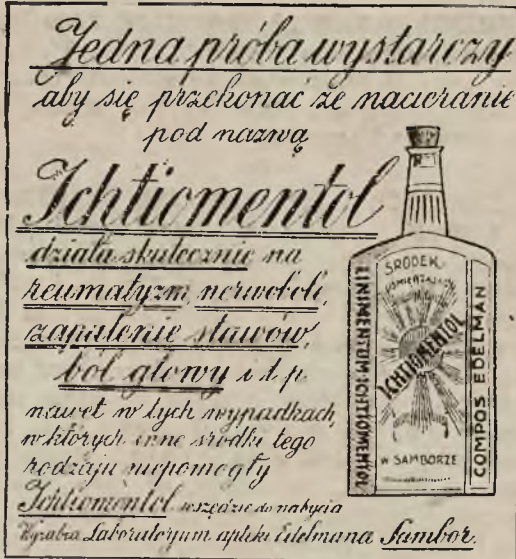 Jedna próba wystarczy
aby się przekonać że nacieranie
pod nazwą
Ichtiomentol
działa skutecznie na
reumatyzm, nerwobole,
zapalenie stawów,
ból głowy i t. p.
nawet w tych wypadkach,
w których inne środki tego
rodzaju niepomogły
Ichtiomentol wszędzie do nabycia
Wyrabia Laboratoryum apteki Edelmana Sambor.
ŚRODEK
UŚMIERZAJĄCY
ICHTIOMENTOL
W SAMBORZE
LINIMENTUM ICHTIOMENTOL
COMPOS EDELMAN